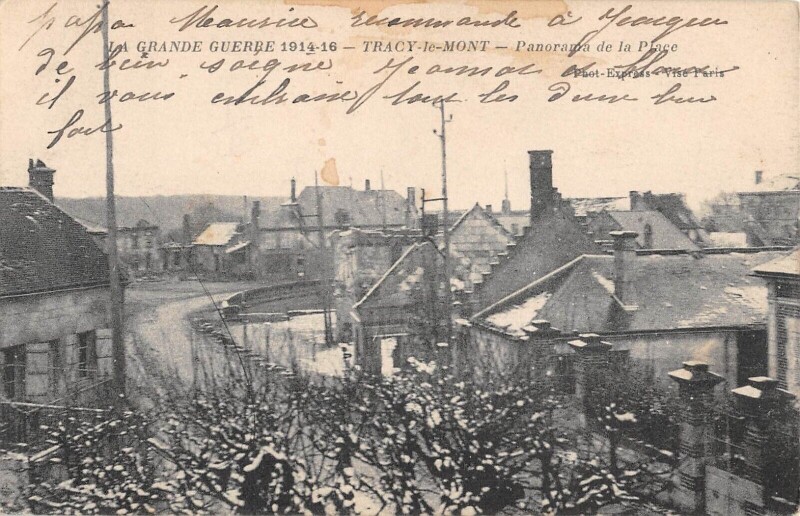 papa Maurice recommande à Françoise
LA GRANDE GUERRE 1914-16 — TRACY-le-MONT — Panorama de la Place
de bien soigné Jeannot et
Phot-Express - Visé Paris
il vous embrasse tous les deux bien
fort